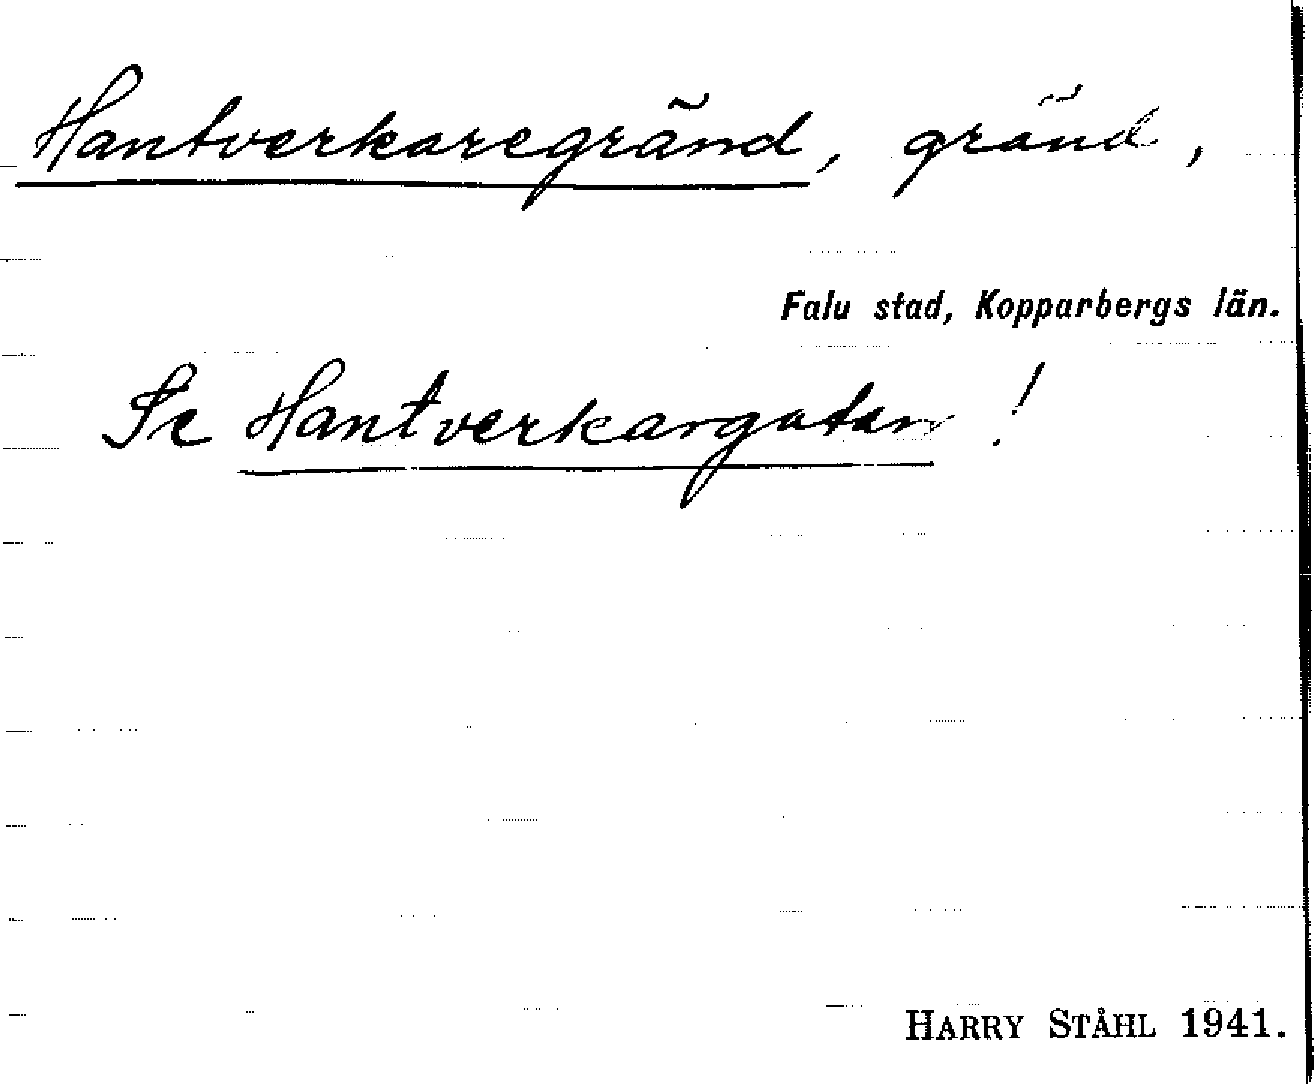 Hantverkaregränd, gränd,
Falu stad, Kopparbergs län.
Se Hantverkargatan!
HARRY STÅHL 1941.